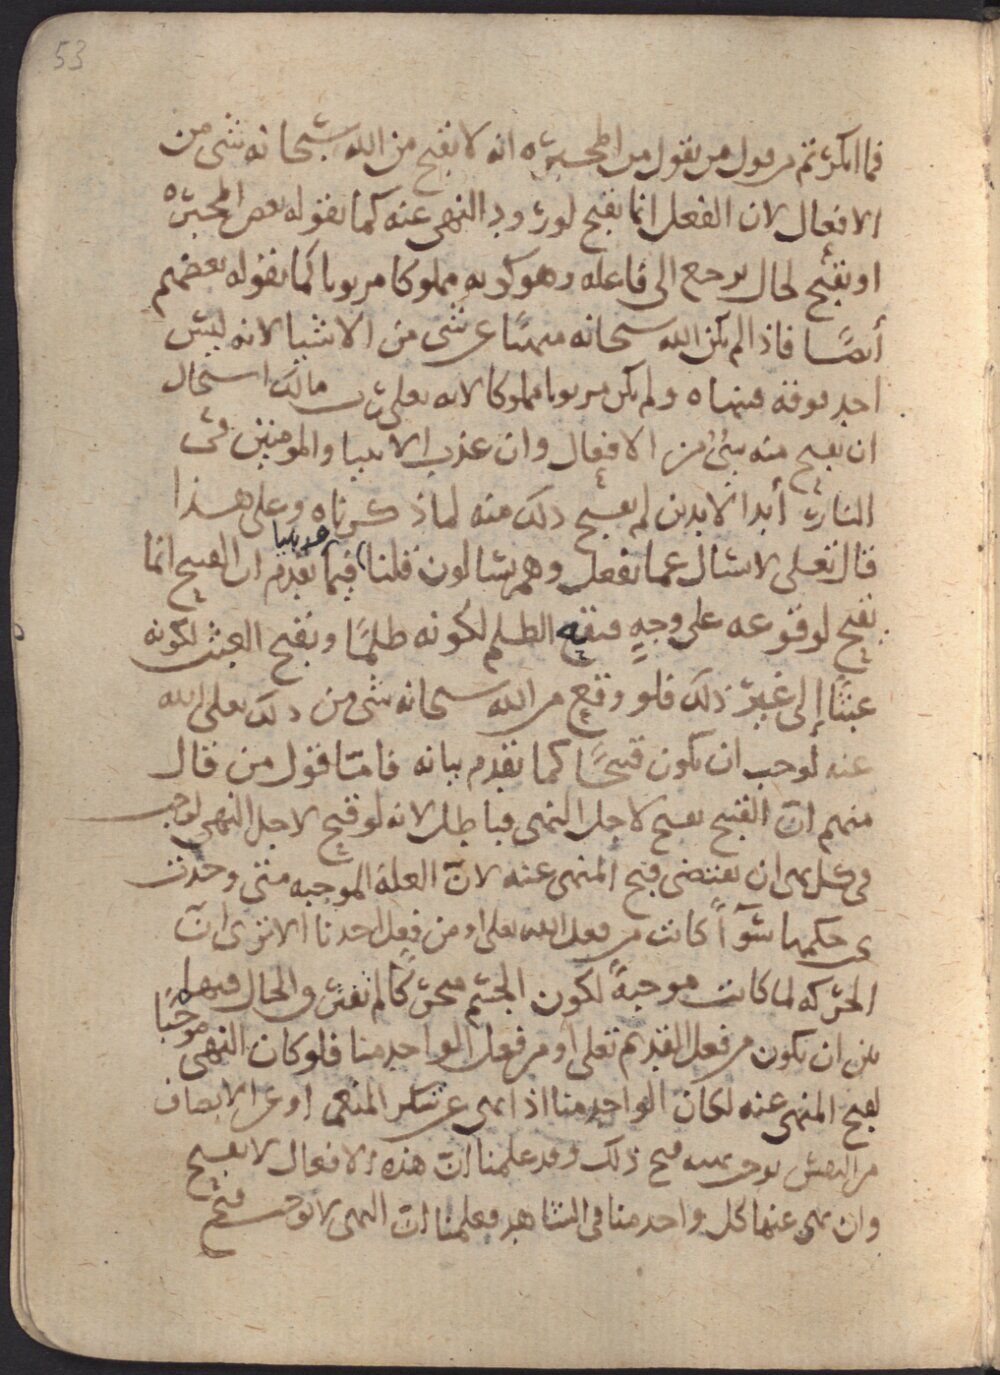 53
فما انكرتم من قول من يقول من المجبرة انه لا يقبح من الله سبحانه شى من
الافعال لان الفعل انما يقبح لورود النهى عنه كما يقوله بعض المجبرة
او يقبح لحال يرجع الى فاعله وهو كونه مملوكا مربوبا كما يقوله بعضهم
أيضًا فاذا لم يكن الله سبحانه منهيًا عن شى من الاشيا لانه ليس
احد فوقه فينهاه ولم يكن مربوبا مملوكا لانه تعلى رب مالك استحال
ان يقبح منه شىُ من الافعال وان عذب الانبيا والمومنين فى
النار أبد الابدين لم يقبح ذلك منه لما ذكرناه وعلى هذا
قال تعلى لا يسال عما يفعل وهم يسالون قلنا فيما تقدم ان القبيح انما
يقبح لوقوعه على وجهٍ فيقبح الظلم لكونه ظلمًا ويقبح العبث لكونه
عبثًا إلى غير ذلك فلو وقع من الله سبحانه شى من ذلك تعلى الله
عنه لوجب ان يكون قبيحًا كما تقدم بيانه فامّا قول من قال
منهم انّ القبيح يقبح لاجل النهى فباطل لانه لو قبح لاجل النهى لوجب
فى كل نهى ان يقتضى قبح المنهى عنه لانّ العلة الموجبه متى وجدت
حكمها سوآً كانت من فعل الله تعلى او من فعل احدنا الا ترى انّ
الحركه لما كانت موجبةً لكون الجسم متحركًا لم تفترق الحال فيها
بين ان يكون من فعل القديم تعلى او من فعل الواحد منا فلو كان النهى موجبًا
لقبح المنهى عنه لكان الواحد منا اذا نهى عن شكر المنعم او عن الانصاف
من النفس يوجب نهيه قبح ذلك وقد علمنا انّ هذه الافعال لا تقبح
وان نهى عنها كل واحد منا فى الشاهد فعلمنا انّ النهى لا يوجب قبح